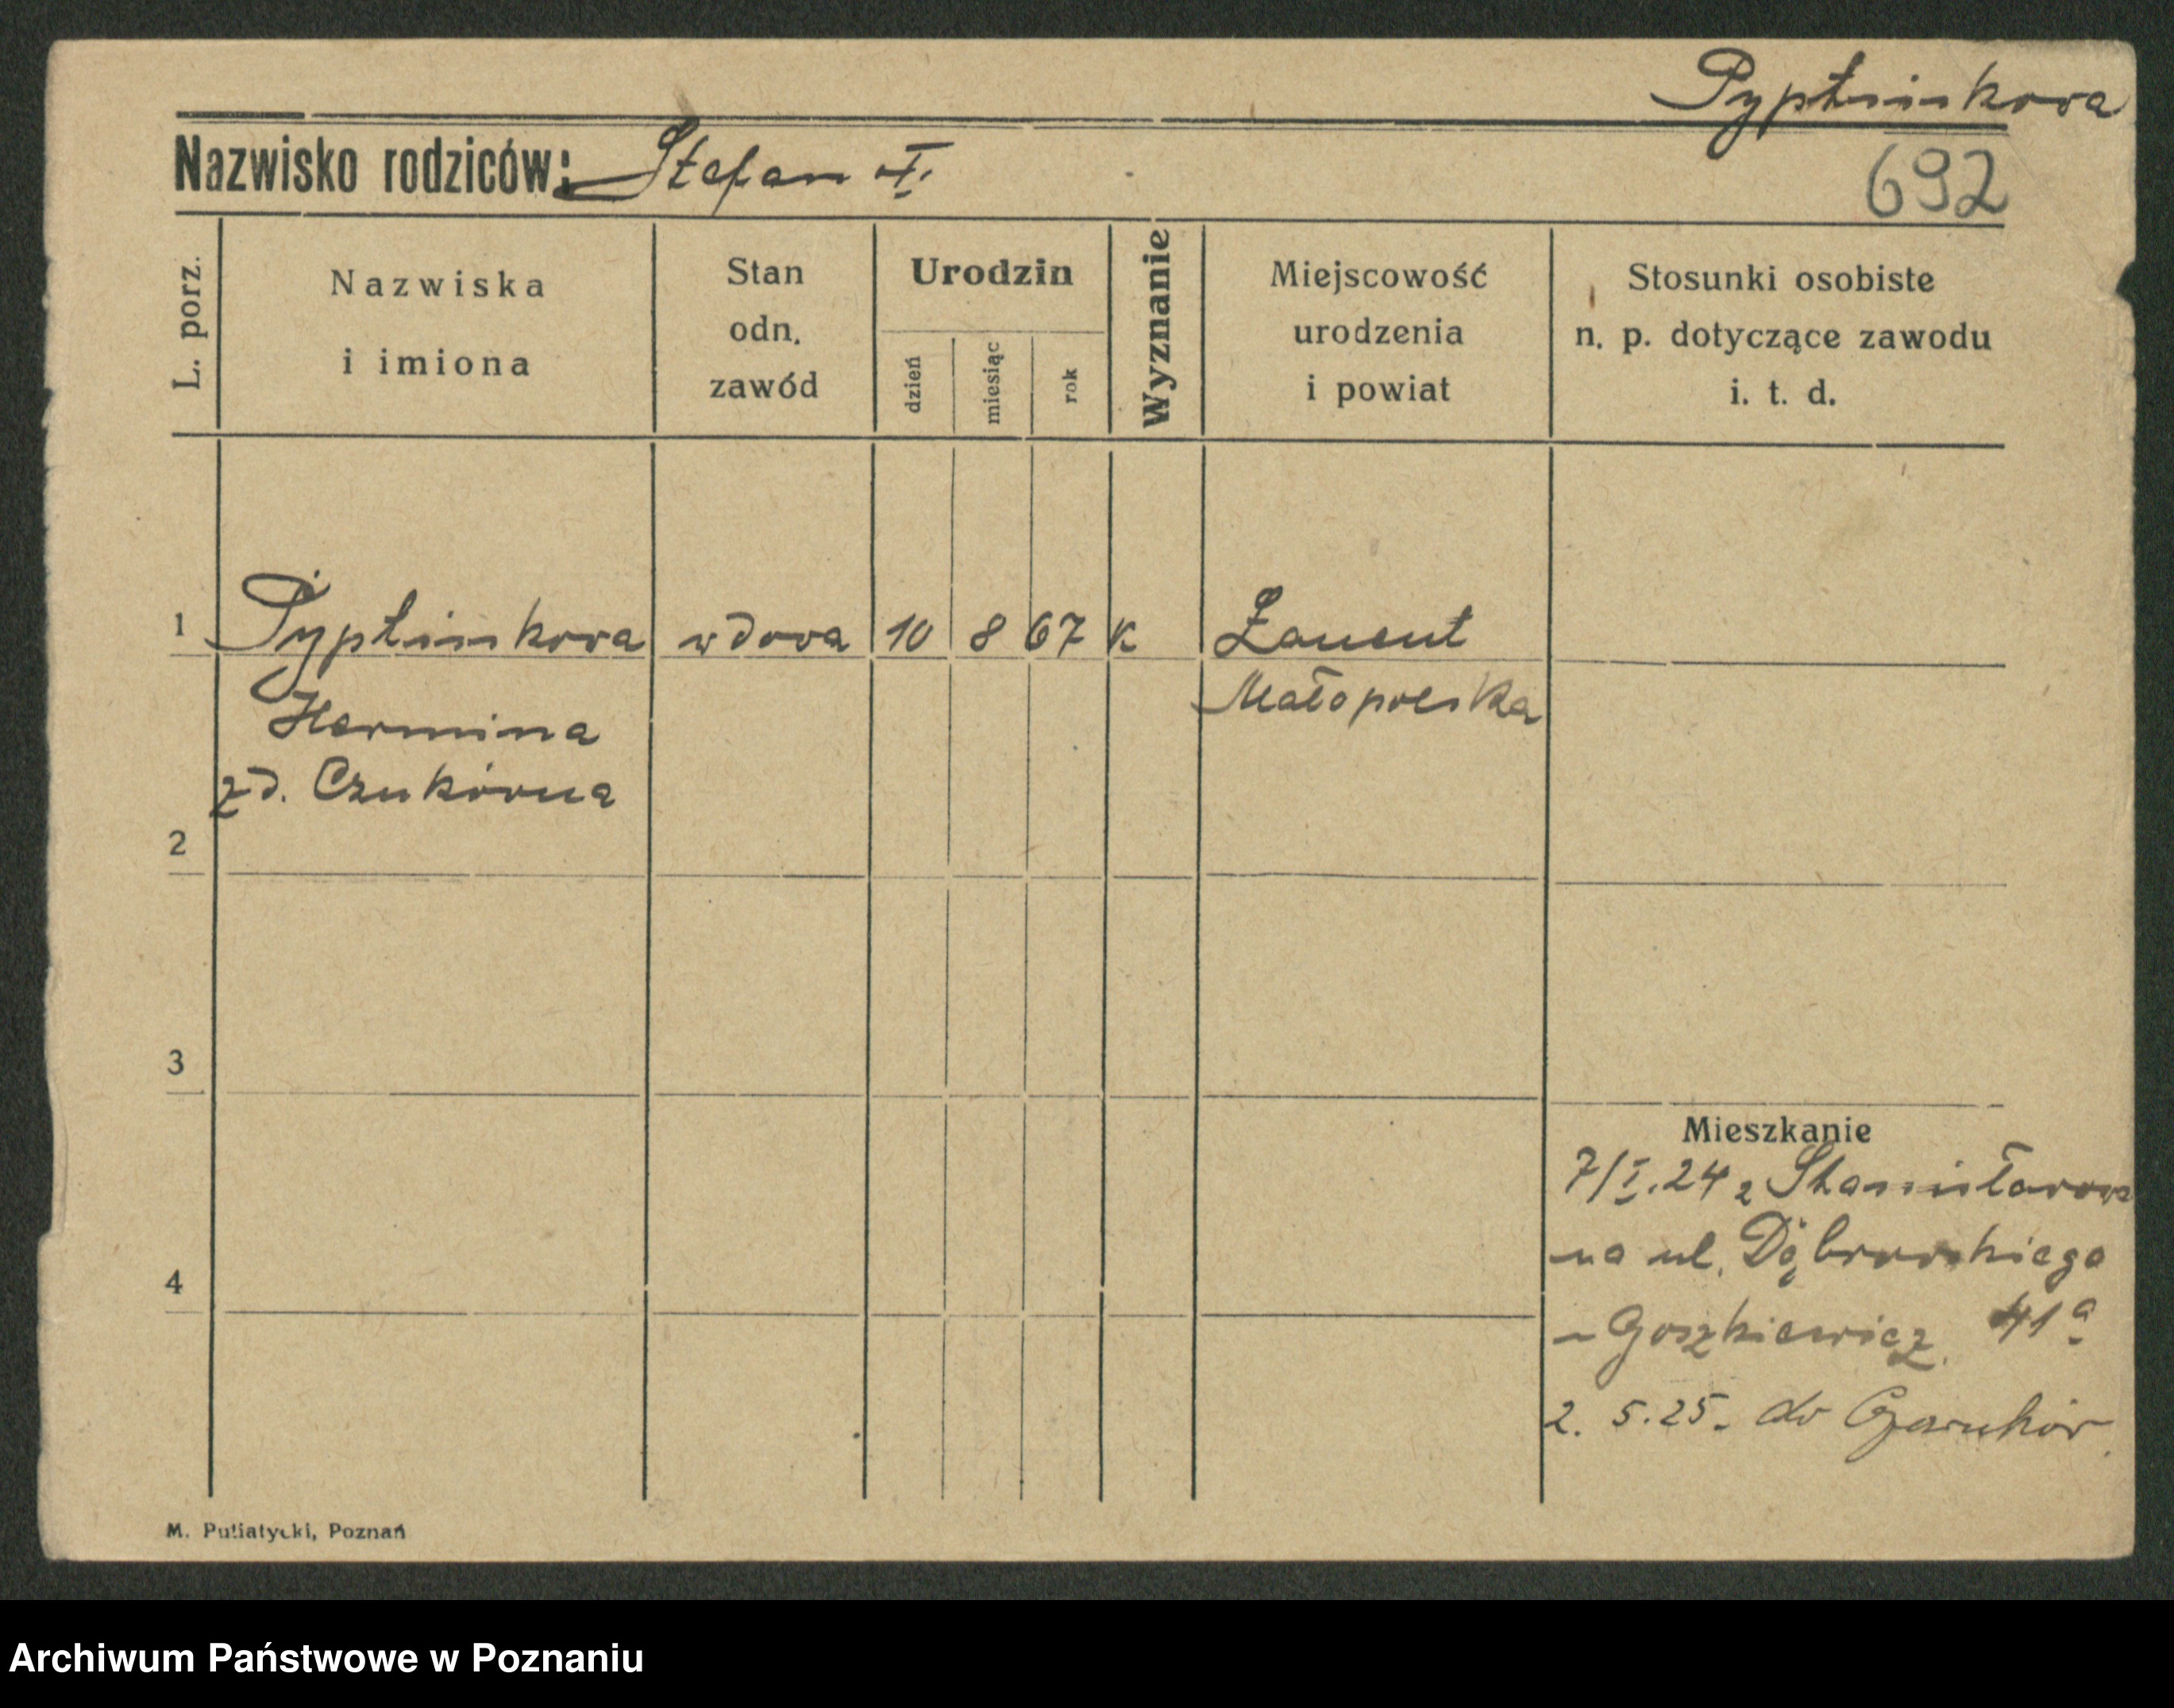 Pyptiunkowa
Nazwisko rodziców: Stefan I.
692
L. porz.
Nazwiska
i imiona
Stan
odn.
zawód
Urodzin
dzień
miesiąc
rok
Wyznanie
Miejscowość
urodzenia
i powiat
Stosunki osobiste
n. p. dotyczące zawodu
i. t. d.
1 wdowa 10 8 67 K Łancut
Małopolska
Hermina
zd.
2
3
Mieszkanie
7/I.24 z Stanisławowa
na ul. Dąbrowskiego
Goszkiewicz 41a
4
2. 5.25. do
M. Putiatycki, Poznań
Archiwum Państwowe w Poznaniu